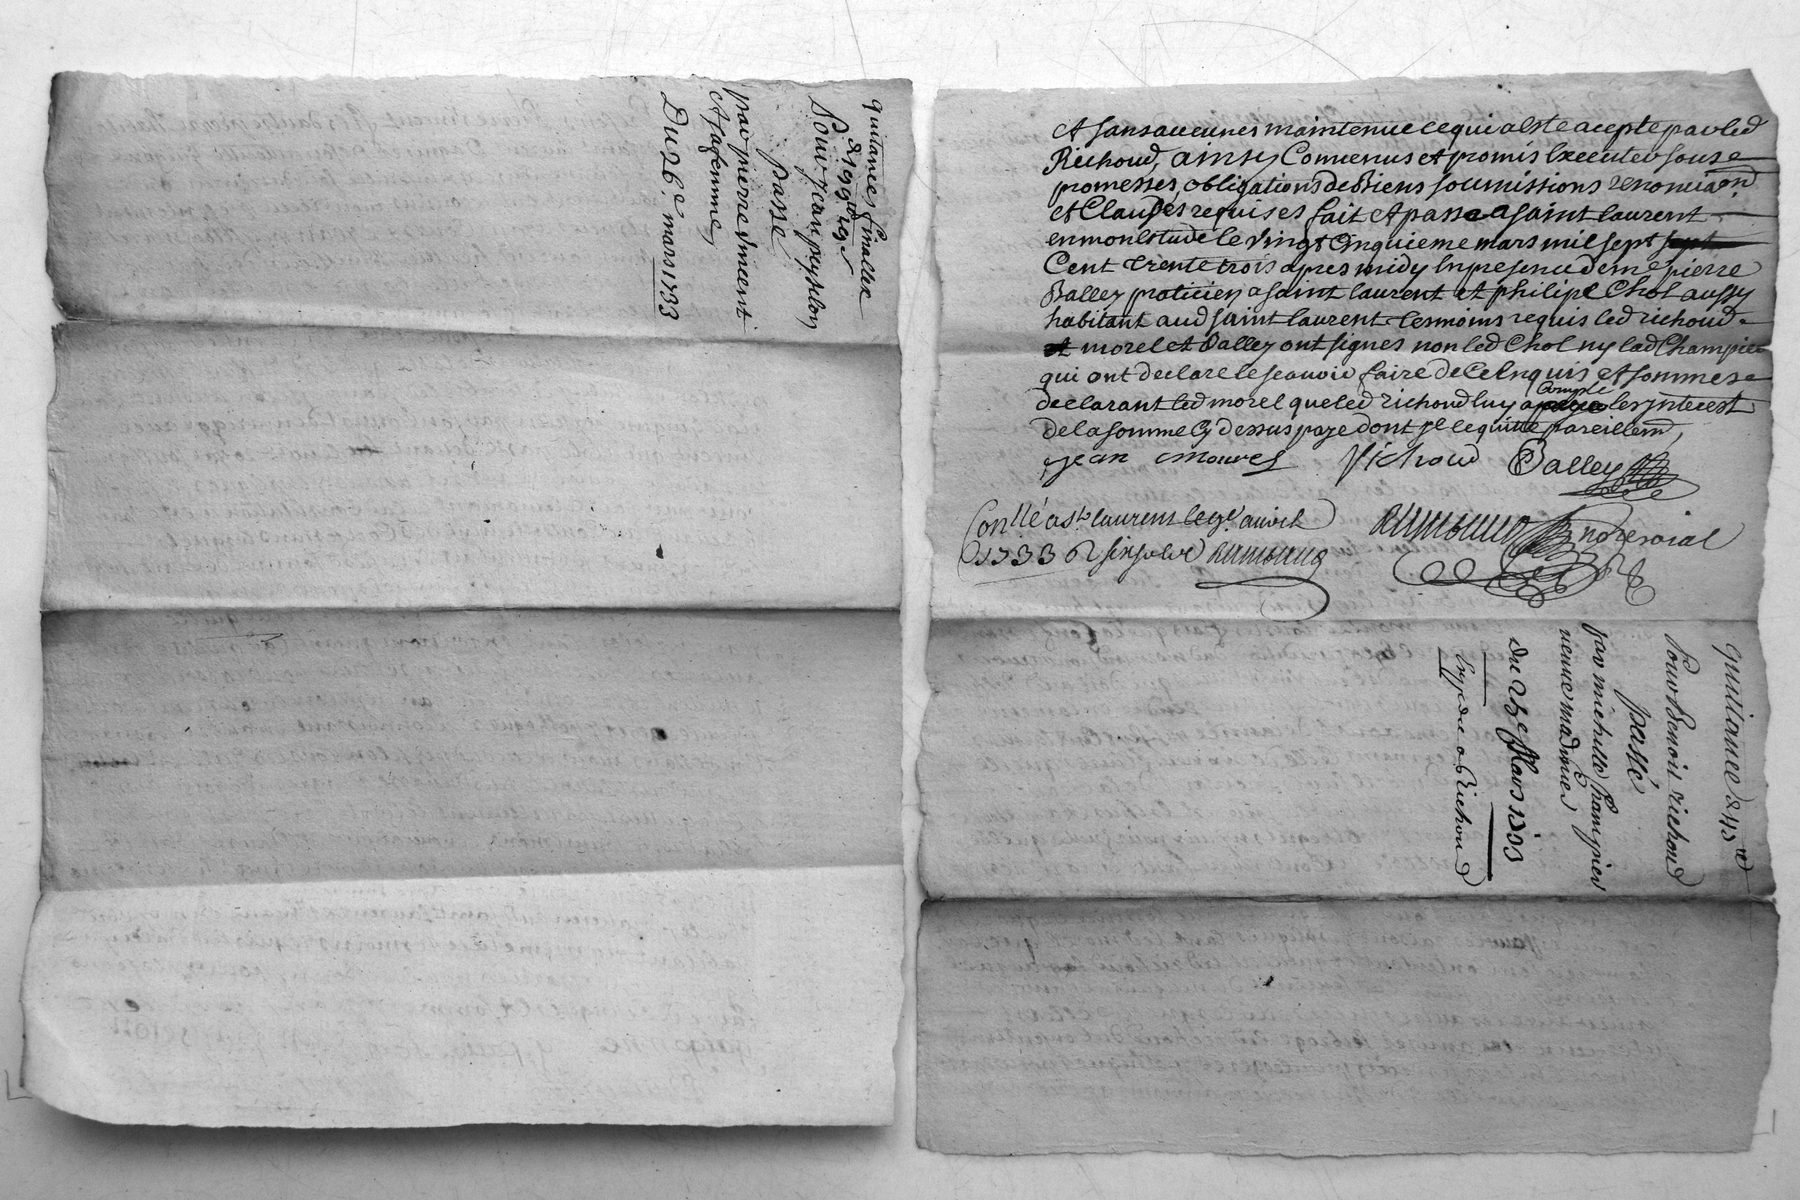 quitances finalles
Pour Jean peyssellon
passé
par pierre Siment
et sa femme
Du 26.e mars 1733
et sans aucunes maintenue ce qui a este acepte par led
Richoud, ainsy Convenus et promis Executer sous
promesses, obligations de Biens soumissions renonciaon
et Clauses requises fait et passe a saint laurent
en mon Estude le vingt Cinquieme mars mil sept
Cent trente trois apres midy En presence de me pierre
Balley praticien a saint laurent et philipe Chol aussy
habitant aud saint laurent tesmoins requis led richoud
morel et Balley ont signes non led Chol ny lad Champier
qui ont declare le scavoir faire de ce Enquis et sommes
declarant led morel que led richoud luy a Compté les ynterest
de la somme Cy dessus paye dont yl le quitte pareillemt,
jean Richoud Balley
Conllé a st laurent le avril
1733 R six sols
nore roial
quittance
Pour Benoit richoud
passé
par michelle Champier
veuve
du 25e Mars 1733
Richoud